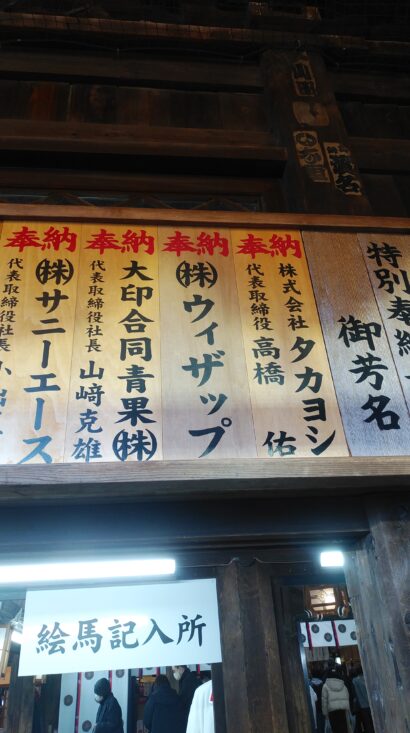 特別奉納
御芳名
奉納
株式会社タカヨシ
代表取締役 高橋 佑
奉納
㈱ウィザップ
奉納
大印合同青果㈱
代表取締役社長 山﨑克雄
奉納
㈱サニーエース
代表取締役社長
絵馬記入所